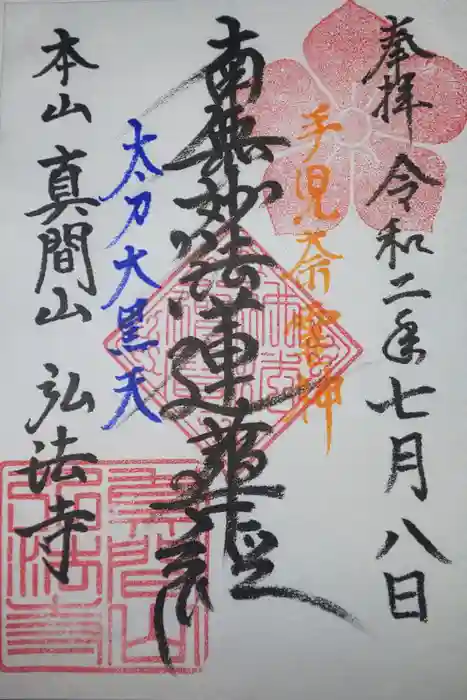 奉拝 令和二年七月八日
手児奈霊神
南無妙法蓮華経
太刀大黒天
本山 真間山 弘法寺